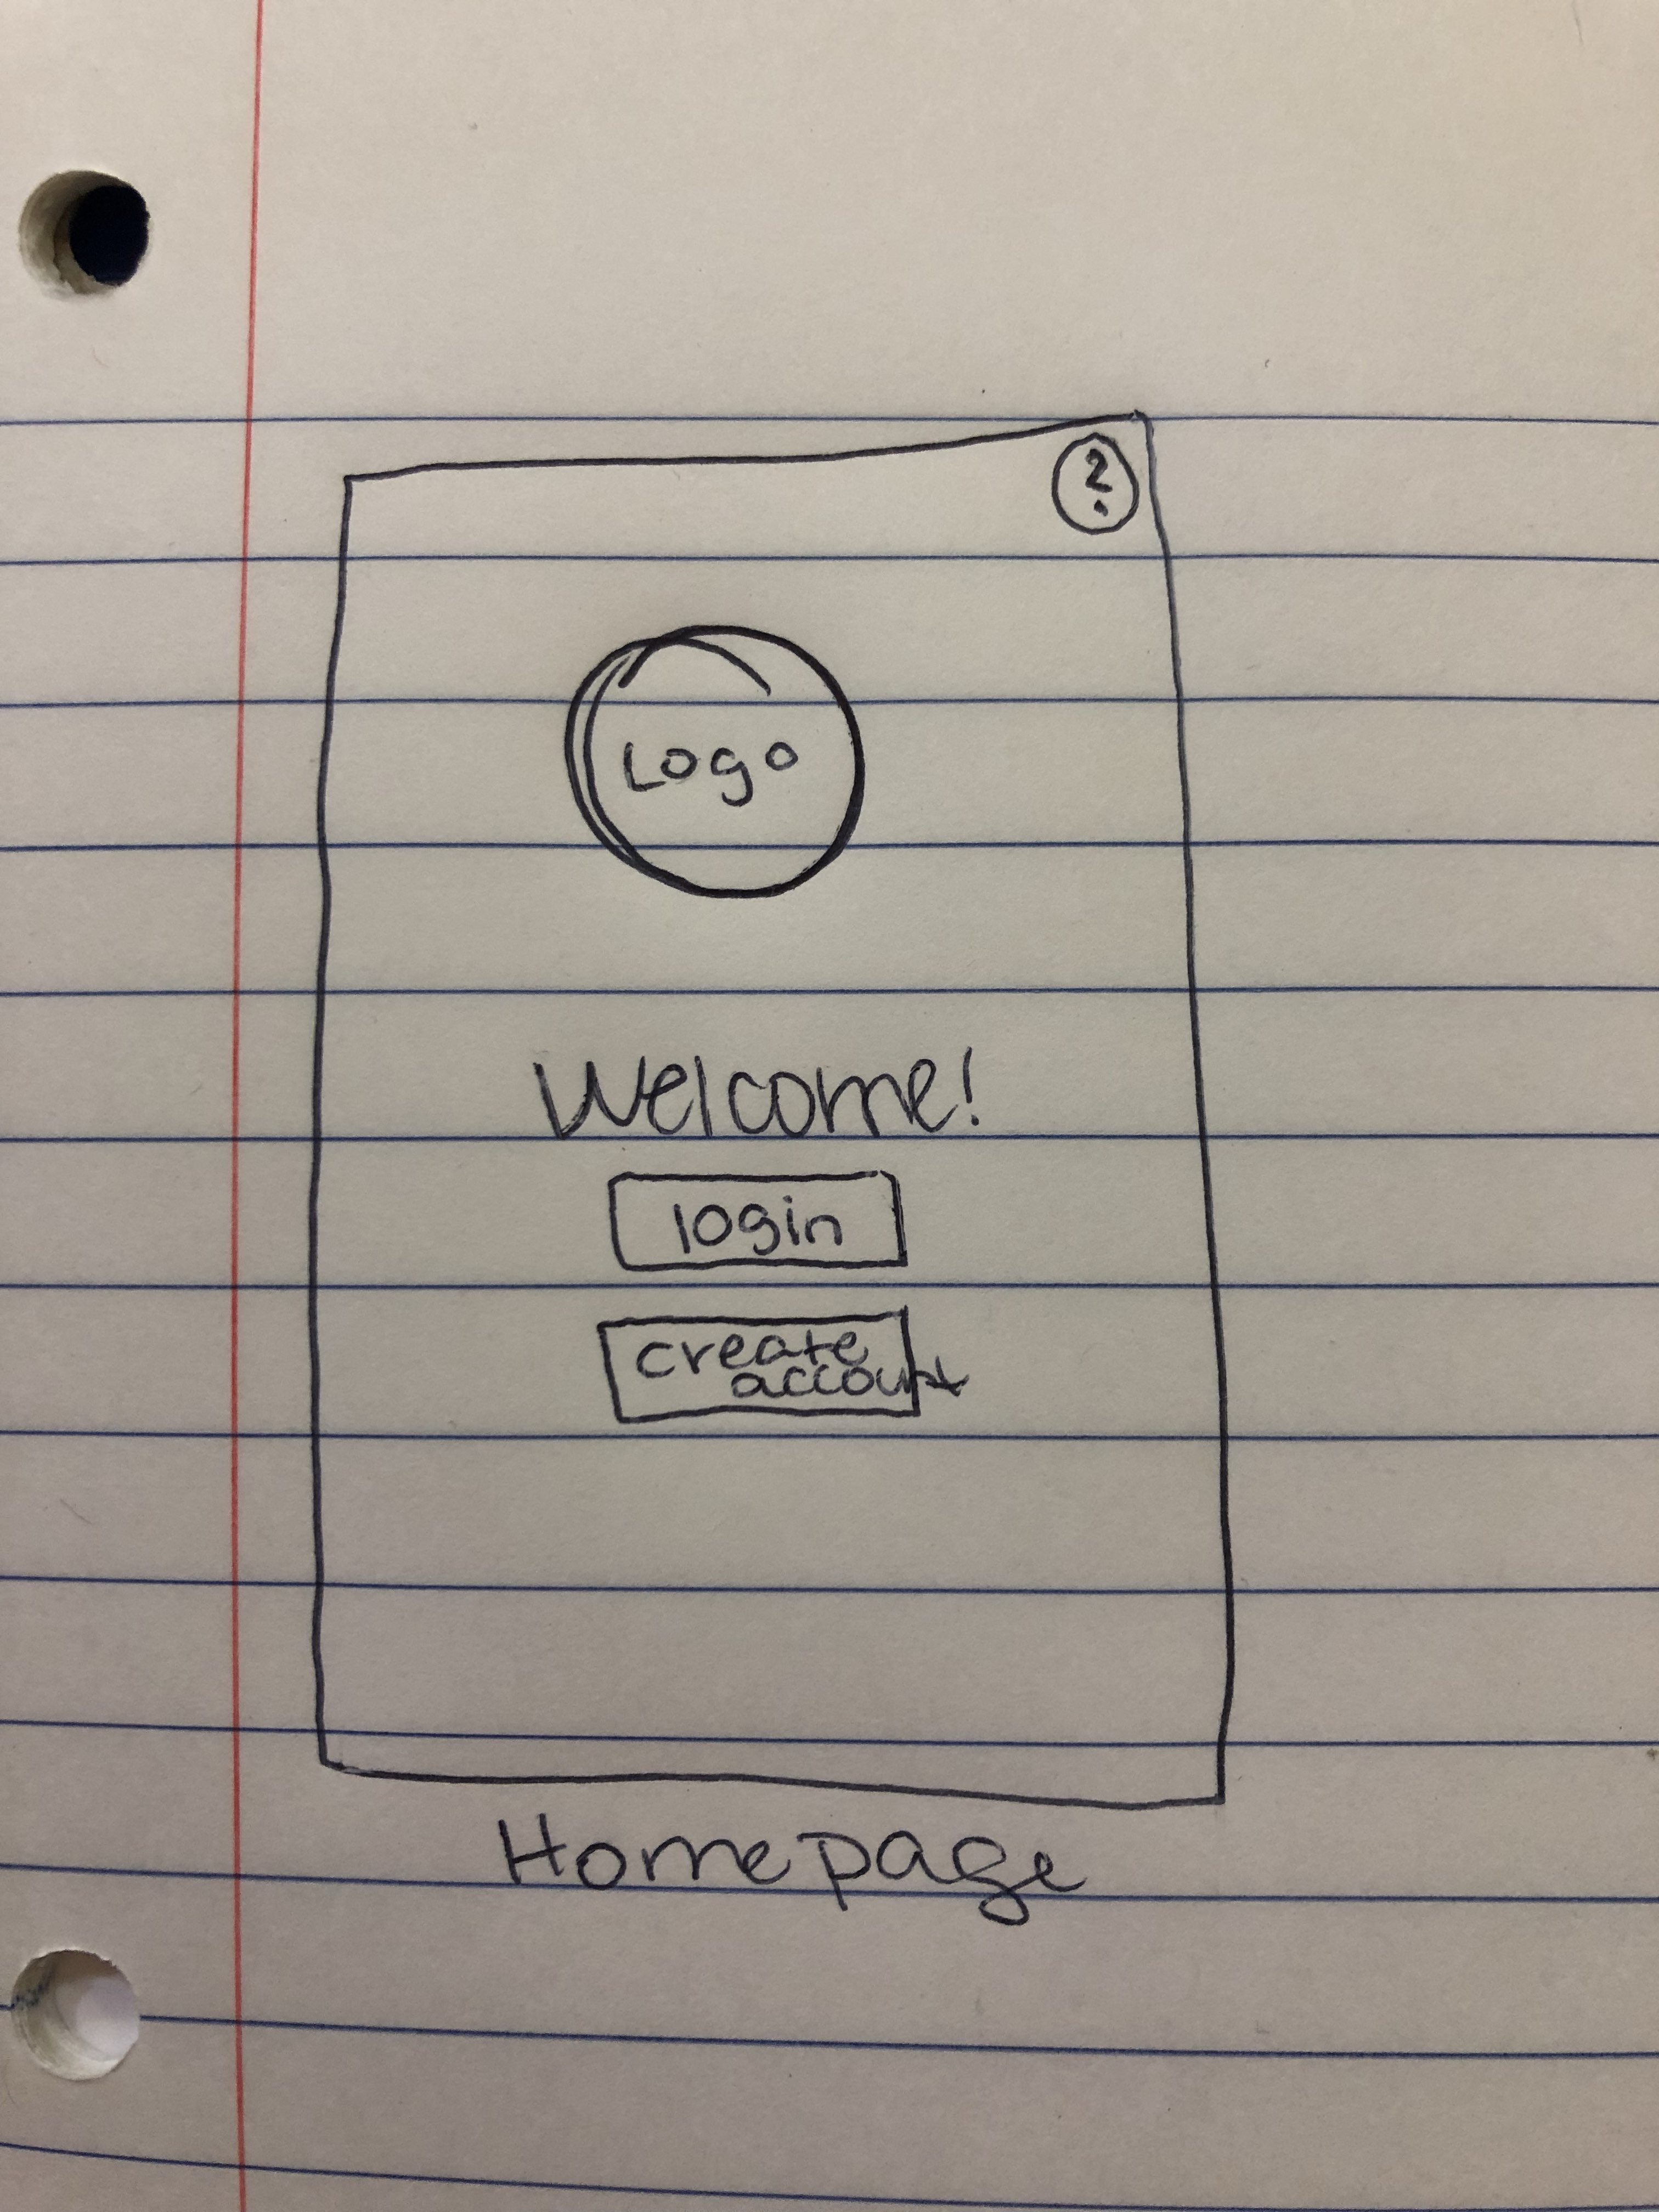 ?
Logo
Welcome!
login
create
account
Homepage